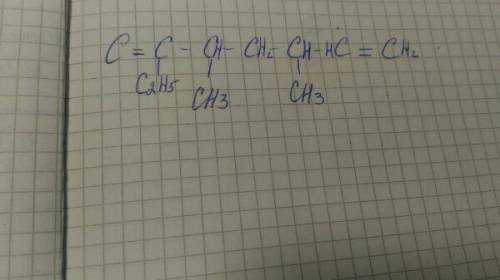 C = C - CH - CH2 - CH - HC = CH2
C2H5 CH3 CH3